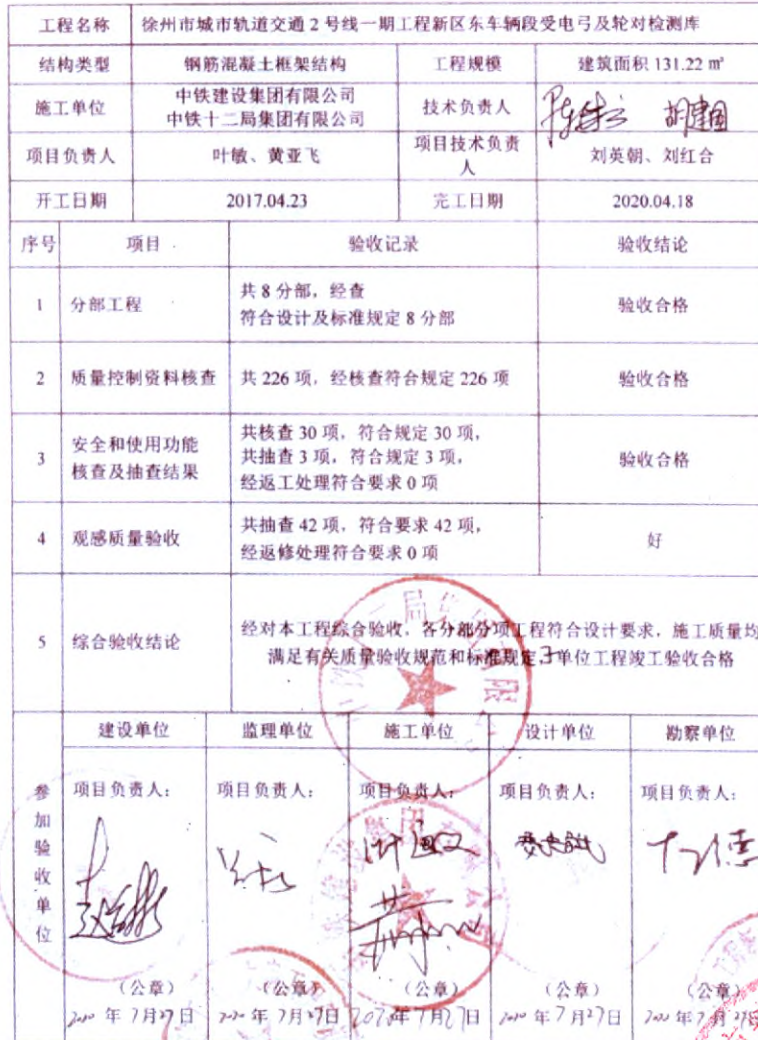 工程名称 徐州市城市轨道交通2号线一期工程新区东车辆段受电弓及轮对检测库
结构类型 钢筋混凝土框架结构 工程规模 建筑面积 131.22 ㎡
施工单位 中铁建设集团有限公司
中铁十二局集团有限公司 技术负责人 胡建国
项目负责人 叶敏、黄亚飞 项目技术负责人 刘英朝、刘红合
开工日期 2017.04.23 完工日期 2020.04.18
序号 项目 验收记录 验收结论
1 分部工程 共 8 分部，经查
符合设计及标准规定 8 分部 验收合格
2 质量控制资料核查 共 226 项，经核查符合规定 226 项 验收合格
3 安全和使用功能
核查及抽查结果 共核查 30 项，符合规定 30 项，
共抽查 3 项，符合规定 3 项，
经返工处理符合要求 0 项 验收合格
4 观感质量验收 共抽查 42 项，符合要求 42 项，
经返修处理符合要求 0 项 好
5 综合验收结论 经对本工程综合验收，各分部分项工程符合设计要求，施工质量均
满足有关质量验收规范和标准规定，子单位工程竣工验收合格
参加验收单位
建设单位 监理单位 施工单位 设计单位 勘察单位
项目负责人： 项目负责人： 项目负责人： 项目负责人： 项目负责人：
叶敏
（公章） （公章） （公章） （公章） （公章）
2020 年 7月27日 2020 年 7月27日 2020年 7月27日 2020 年 7月27日 2020 年 7月27日